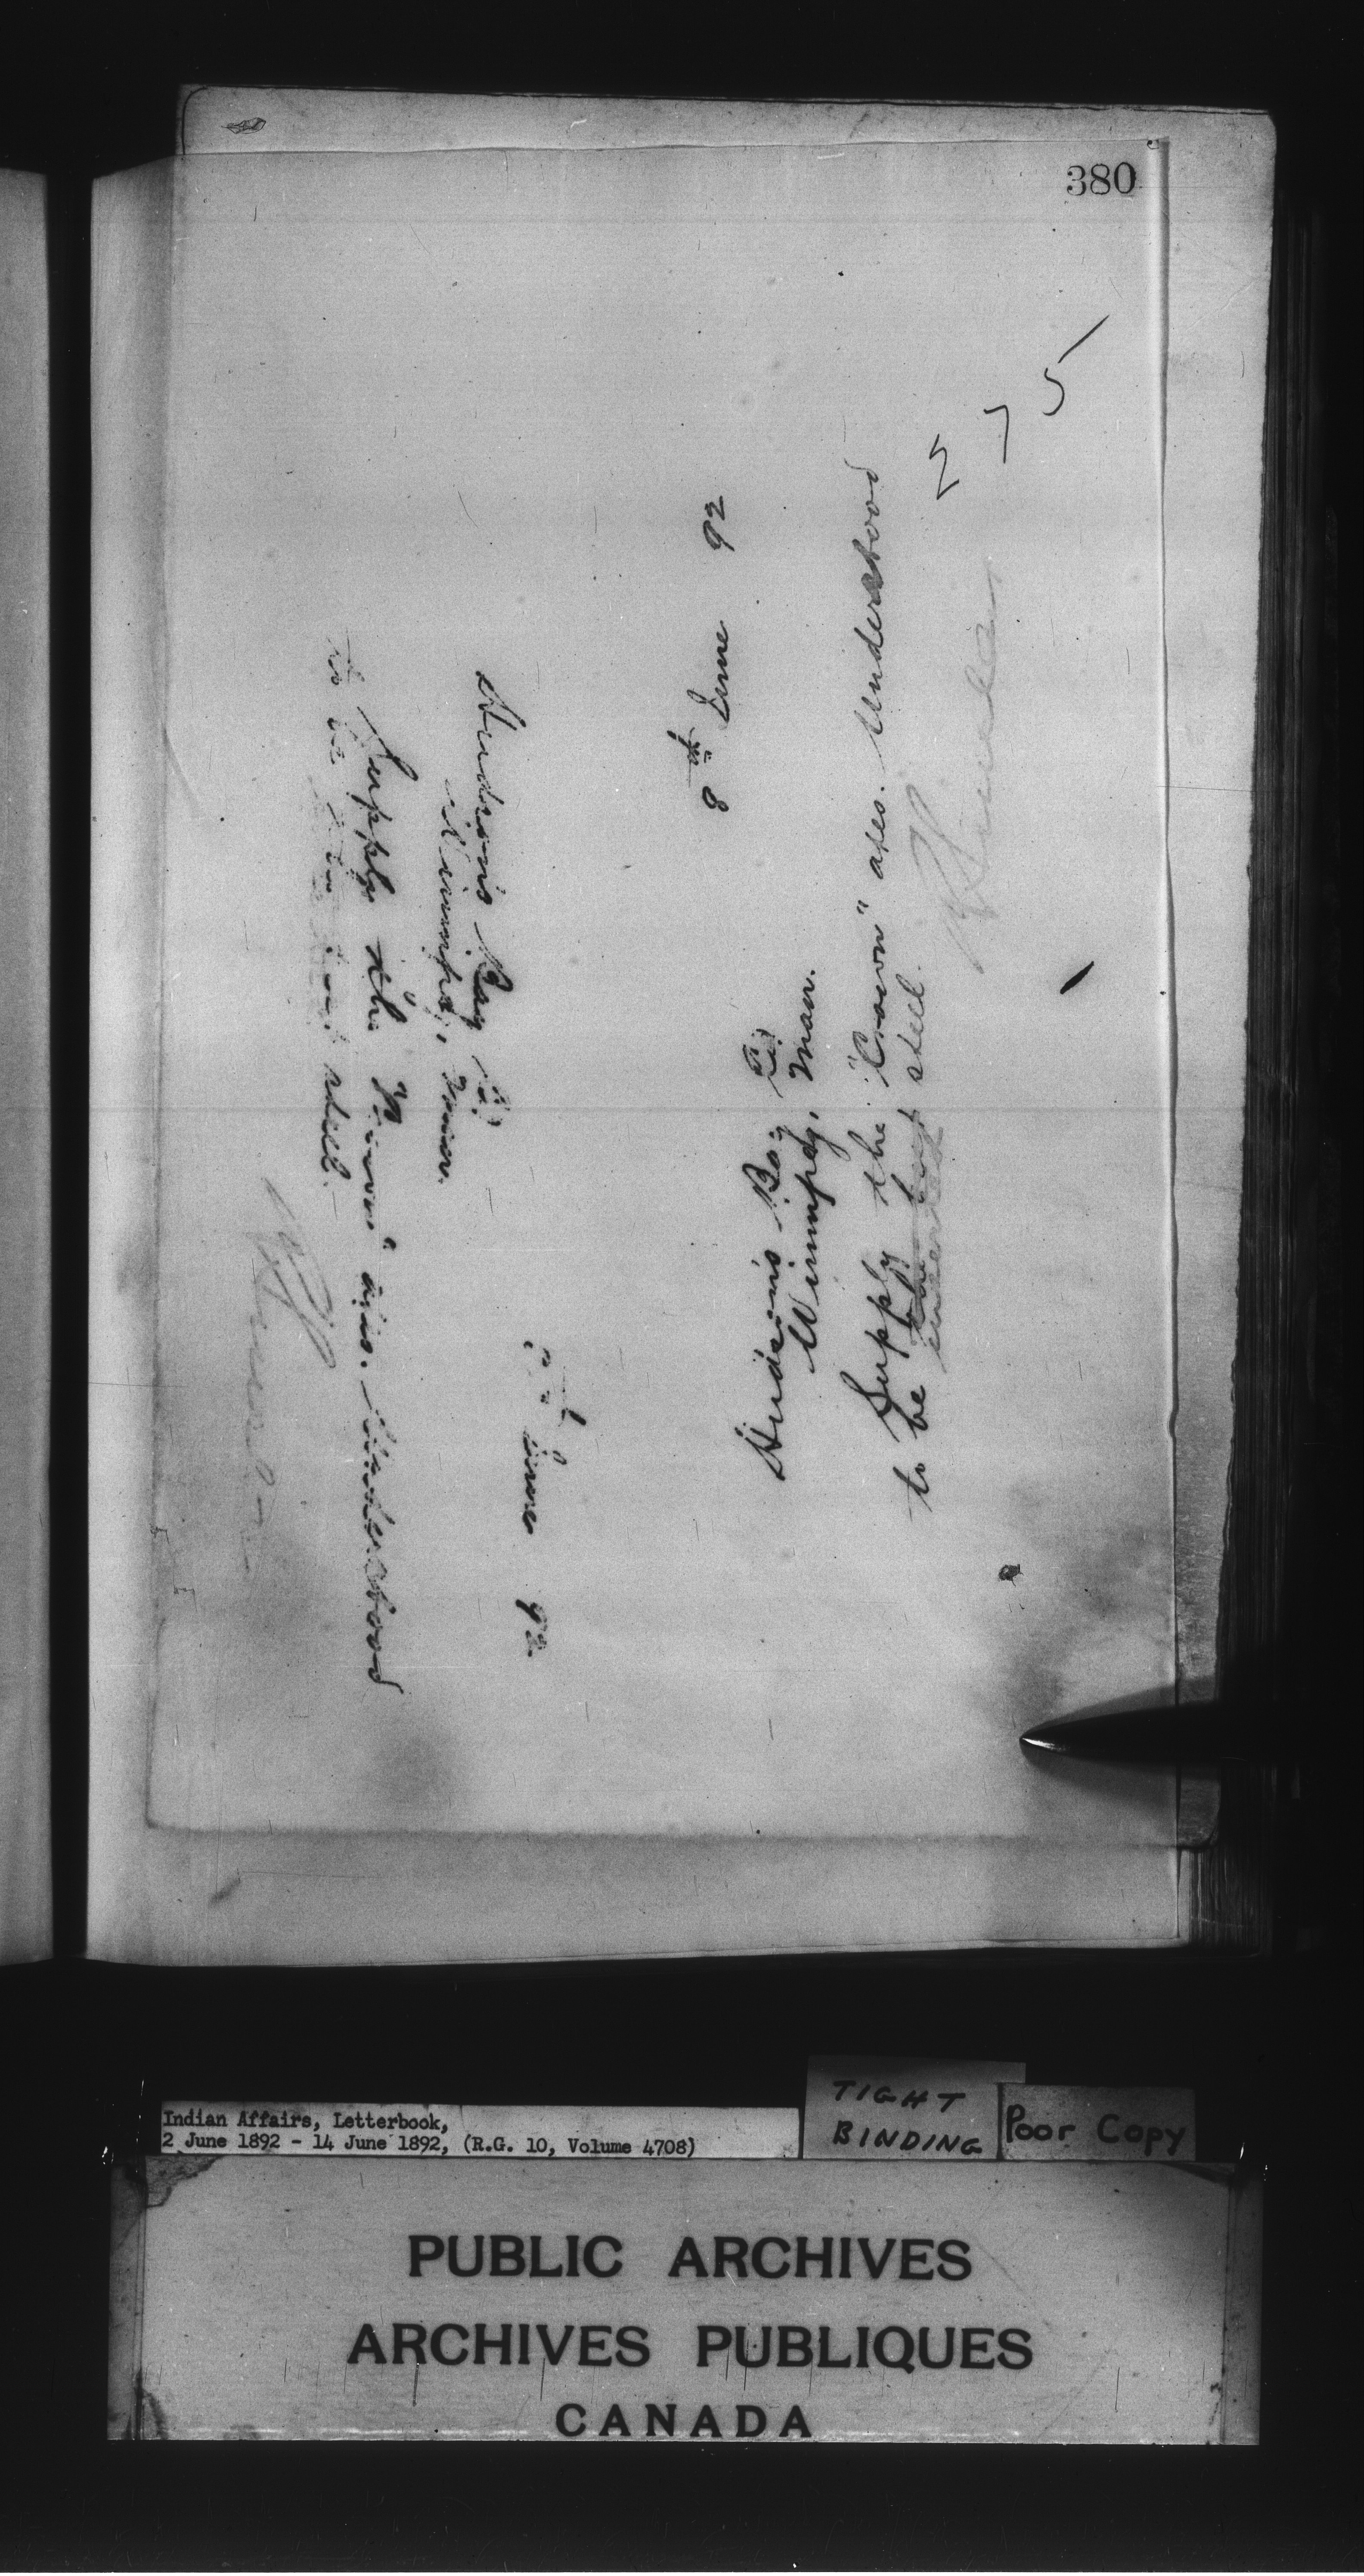 380
275
8th June 92
Hudson's Bay Co
Winnipeg, Man.
Supply the "Crown" axes. Understood
to be steel.
June 92
Hudson's Bay Co
Winnipeg, Man.
Supply the axes. Understood
to be steel.
Indian Affairs, Letterbook,
2 June 1892 - 14 June 1892, (R.G. 10, Volume 4708)
TIGHT
BINDING
Poor Copy
PUBLIC ARCHIVES
ARCHIVES PUBLIQUES
CANADA